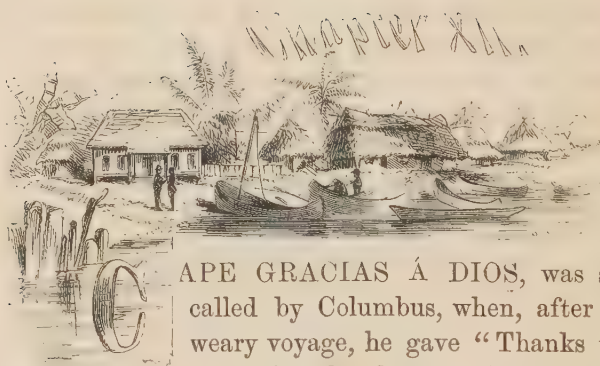 Chapter XII.
CAPE GRACIAS Á DIOS, was
called by Columbus, when, after
weary voyage, he gave “Thanks